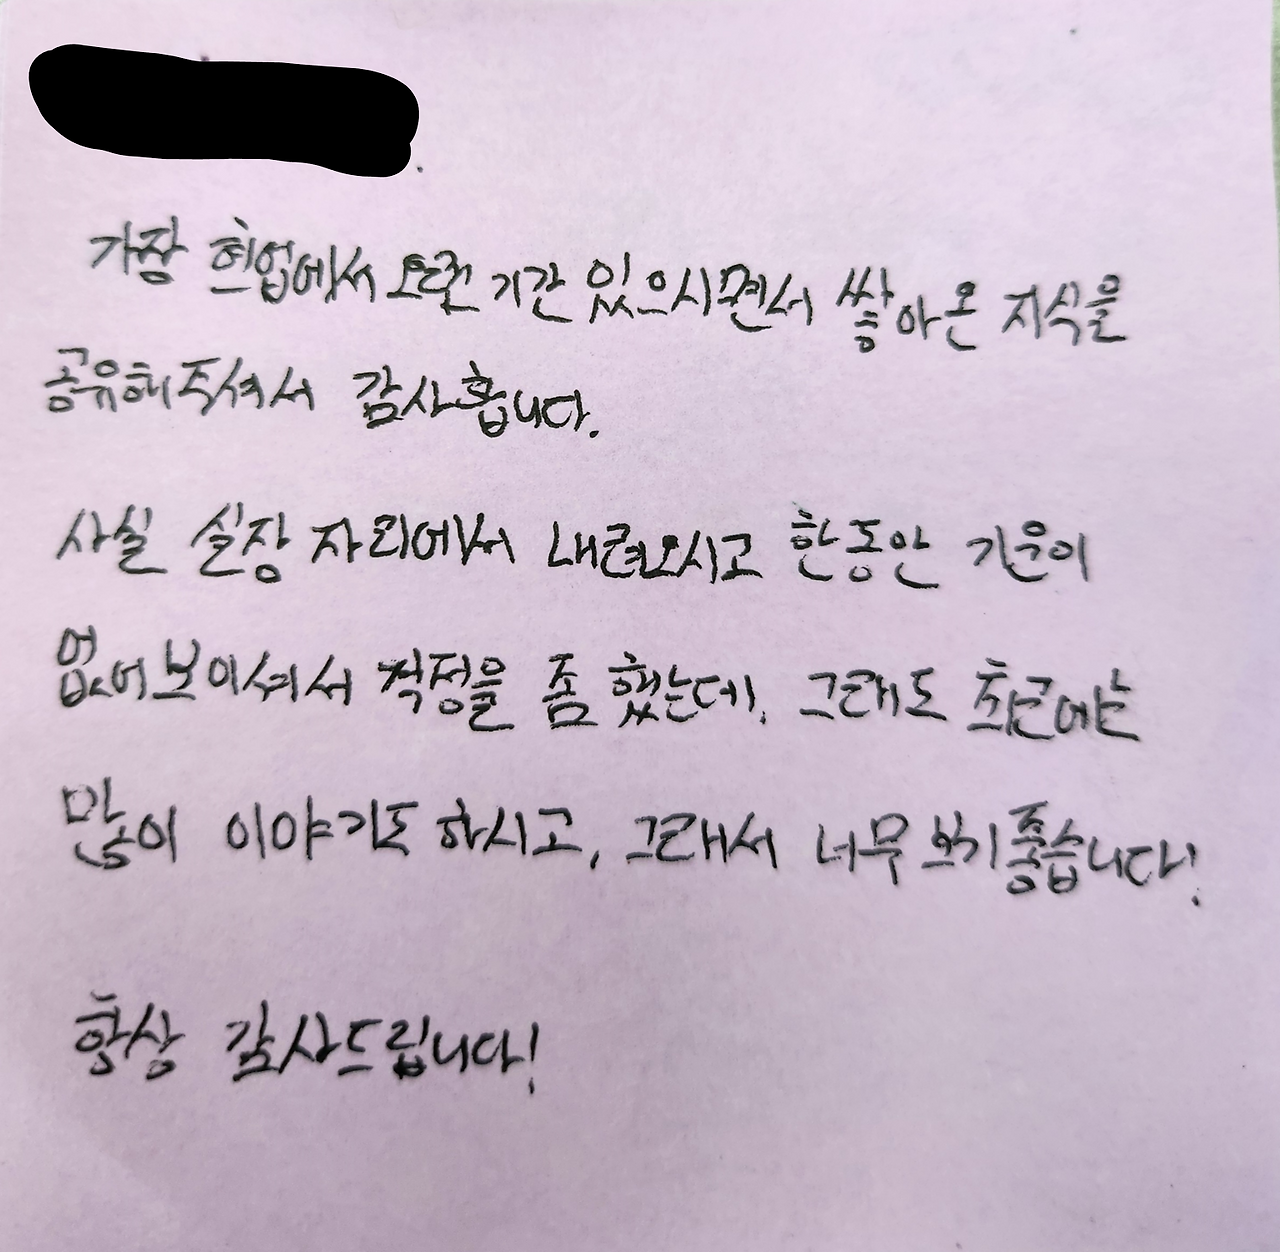 가장 현업에서 오랜 기간 있으시면서 쌓아온 지식을
공유해주셔서 감사합니다.
사실 실장 자리에서 내려오시고 한동안 기운이
없어보이셔서 걱정을 좀 했는데, 그래도 최근에는
많이 이야기도 하시고, 그래서 너무 보기좋습니다!
항상 감사드립니다!